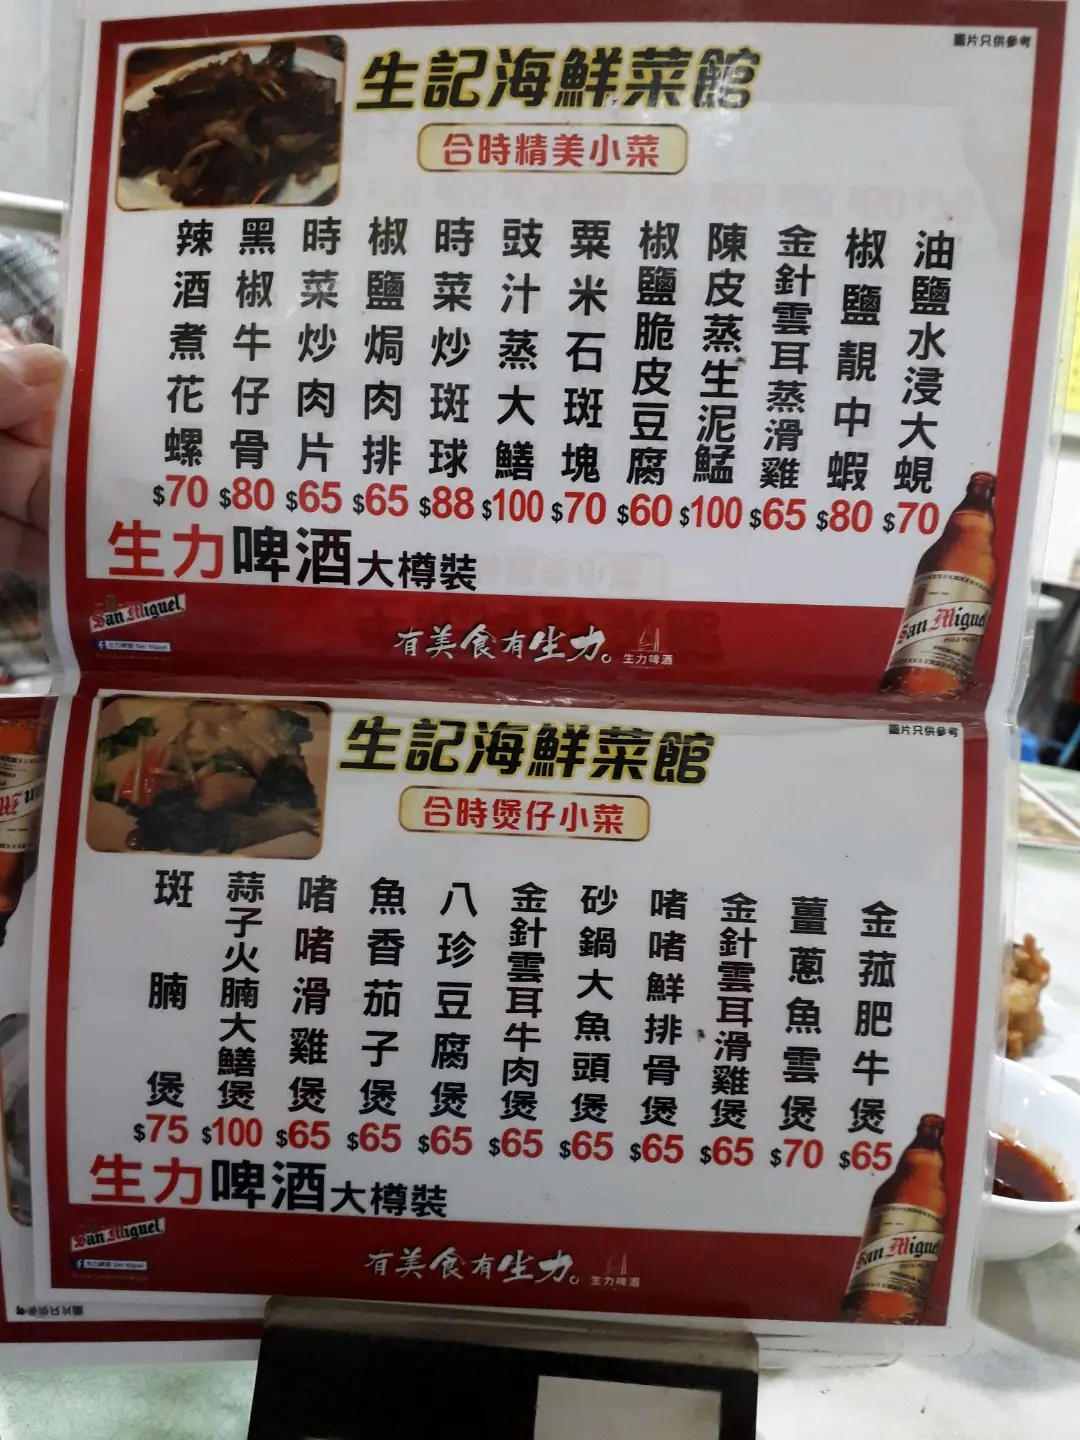 圖片只供參考
生記海鮮菜館
合時精美小菜
油鹽水浸大蜆 $70
椒鹽靚中蝦 $80
金針雲耳蒸滑雞 $65
陳皮蒸生泥鯭 $100
椒鹽脆皮豆腐 $60
粟米石斑塊 $70
豉汁蒸大鱔 $100
時菜炒斑球 $88
椒鹽焗肉排 $65
時菜炒肉片 $65
黑椒牛仔骨 $80
辣酒煮花螺 $70
生力啤酒大樽裝
San Miguel
生力啤酒 San Miguel
有美食有生力。
生力啤酒
San Miguel
圖片只供參考
生記海鮮菜館
合時煲仔小菜
金菰肥牛煲 $65
薑蔥魚雲煲 $70
金針雲耳滑雞煲 $65
啫啫鮮排骨煲 $65
砂鍋大魚頭煲 $65
金針雲耳牛肉煲 $65
八珍豆腐煲 $65
魚香茄子煲 $65
啫啫滑雞煲 $65
蒜子火腩大鱔煲 $100
斑腩煲 $75
生力啤酒大樽裝
San Miguel
生力啤酒 San Miguel
有美食有生力。
生力啤酒
San Miguel
圖片只供參考